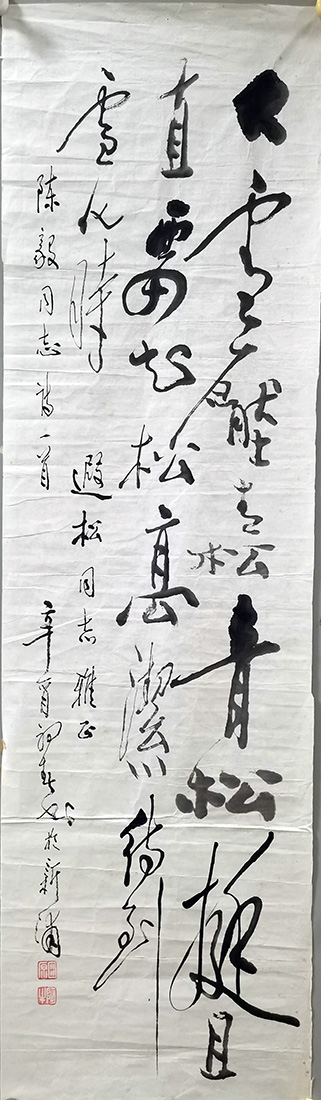 大雪压青松青松挺且
直要知松高潔待到
雪化時
遐松同志雅正
陈毅同志詩一首
辛酉初春书於新浦